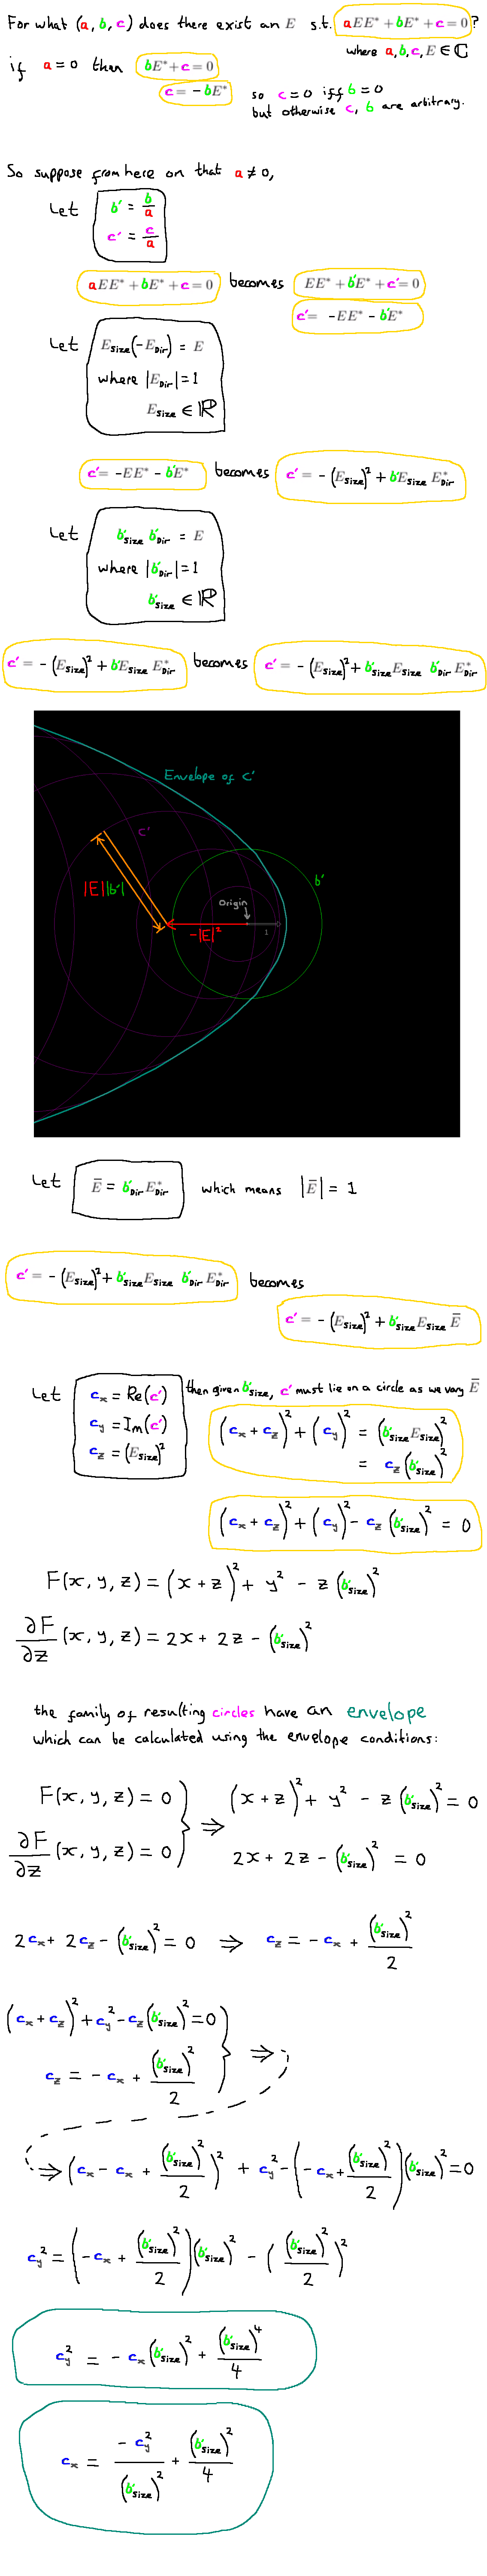 For what (a, b, c) does there exist an E s.t. aEE* + bE* + c = 0?
where a, b, c, E ∈ ℂ
if a = 0 then bE* + c = 0
c = -bE*
so c = 0 iff b = 0
but otherwise c, b are arbitrary.
So suppose from here on that a ≠ 0,
Let b' = b/a
c' = c/a
aEE* + bE* + c = 0 becomes EE* + b'E* + c' = 0
c' = -EE* - b'E*
Let E_size(-E_Dir) = E
where |E_Dir| = 1
E_size ∈ ℝ
c' = -EE* - b'E* becomes c' = -(E_size)² + b'E_size E*_Dir
Let b'_size b'_Dir = E
where |b'_Dir| = 1
b'_size ∈ ℝ
c' = -(E_size)² + b'E_size E*_Dir becomes c' = -(E_size)² + b'_size E_size b'_Dir E*_Dir
Envelope of c'
c'
b'
|E||b'|
Origin
-|E|²
1
Let Ē = b'_Dir E*_Dir which means |Ē| = 1
c' = -(E_size)² + b'_size E_size b'_Dir E*_Dir becomes
c' = -(E_size)² + b'_size E_size Ē
Let c_x = Re(c')
c_y = Im(c')
c_z = (E_size)²
then given b'_size, c' must lie on a circle as we vary Ē
(c_x + c_z)² + (c_y)² = (b'_size E_size)²
= c_z (b'_size)²
(c_x + c_z)² + (c_y)² - c_z (b'_size)² = 0
F(x, y, z) = (x + z)² + y² - z (b'_size)²
∂F/∂z (x, y, z) = 2x + 2z - (b'_size)²
the family of resulting circles have an envelope
which can be calculated using the envelope conditions:
F(x, y, z) = 0
∂F/∂z (x, y, z) = 0 } ⇒ (x + z)² + y² - z (b'_size)² = 0
2x + 2z - (b'_size)² = 0
2c_x + 2c_z - (b'_size)² = 0 ⇒ c_z = -c_x + (b'_size)²/2
(c_x + c_z)² + c_y² - c_z (b'_size)² = 0
c_z = -c_x + (b'_size)²/2 } ⇒
⇒ (c_x - c_x + (b'_size)²/2)² + c_y² - (-c_x + (b'_size)²/2)(b'_size)² = 0
c_y² = (-c_x + (b'_size)²/2)(b'_size)² - ((b'_size)²/2)²
c_y² = -c_x (b'_size)² + (b'_size)⁴/4
c_x = -c_y²/(b'_size)² + (b'_size)²/4